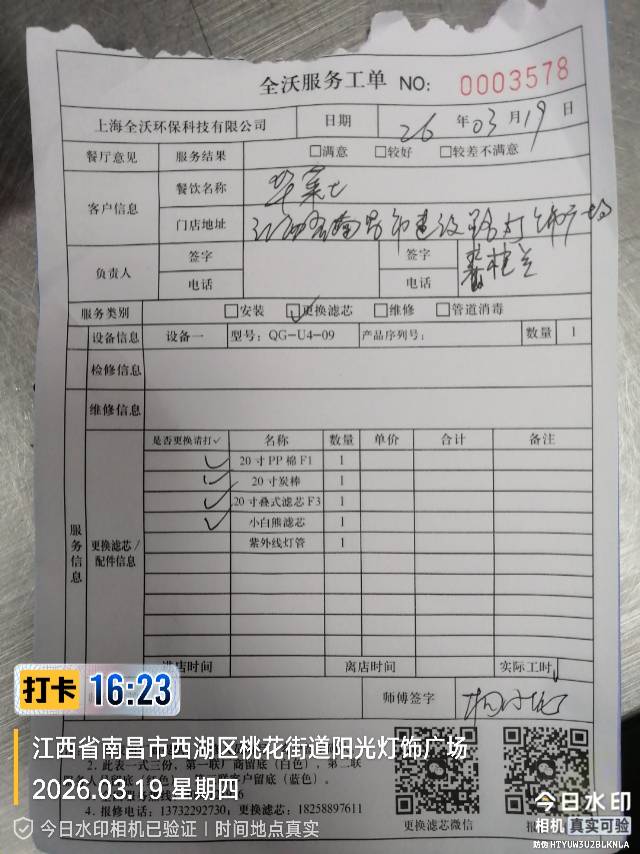 全沃服务工单 NO: 0003578
上海全沃环保科技有限公司 日期 26 年 03 月 19 日
餐厅意见 服务结果 □满意 □较好 □较差不满意
客户信息 餐饮名称 华莱士
门店地址 江西省南昌市建设路灯饰广场
负责人 签字 签字
电话 电话
服务类别 □安装 ☑更换滤芯 □维修 □管道消毒
设备信息 设备一 型号: QG-U4-09 产品序列号: 数量 1
检修信息
维修信息
服务信息
更换滤芯/配件信息
是否更换请打✓ 名称 数量 单价 合计 备注
✓ 20寸PP棉F1 1
✓ 20寸炭棒 1
✓ 20寸叠式滤芯F3 1
✓ 小白熊滤芯 1
紫外线灯管 1
进店时间 离店时间 实际工时
师傅签字
打卡 16:23
江西省南昌市西湖区桃花街道阳光灯饰广场
2. 此表一式三份，第一联厂商留底（白色），第二联
2026.03.19 星期四
客户留底（蓝色）。
4. 报修电话: 13732292730, 更换滤芯: 18258897611
更换滤芯微信
今日水印相机已验证 | 时间地点真实
今日水印
相机 真实可验
防伪 HTYUW3U2BLKNLA